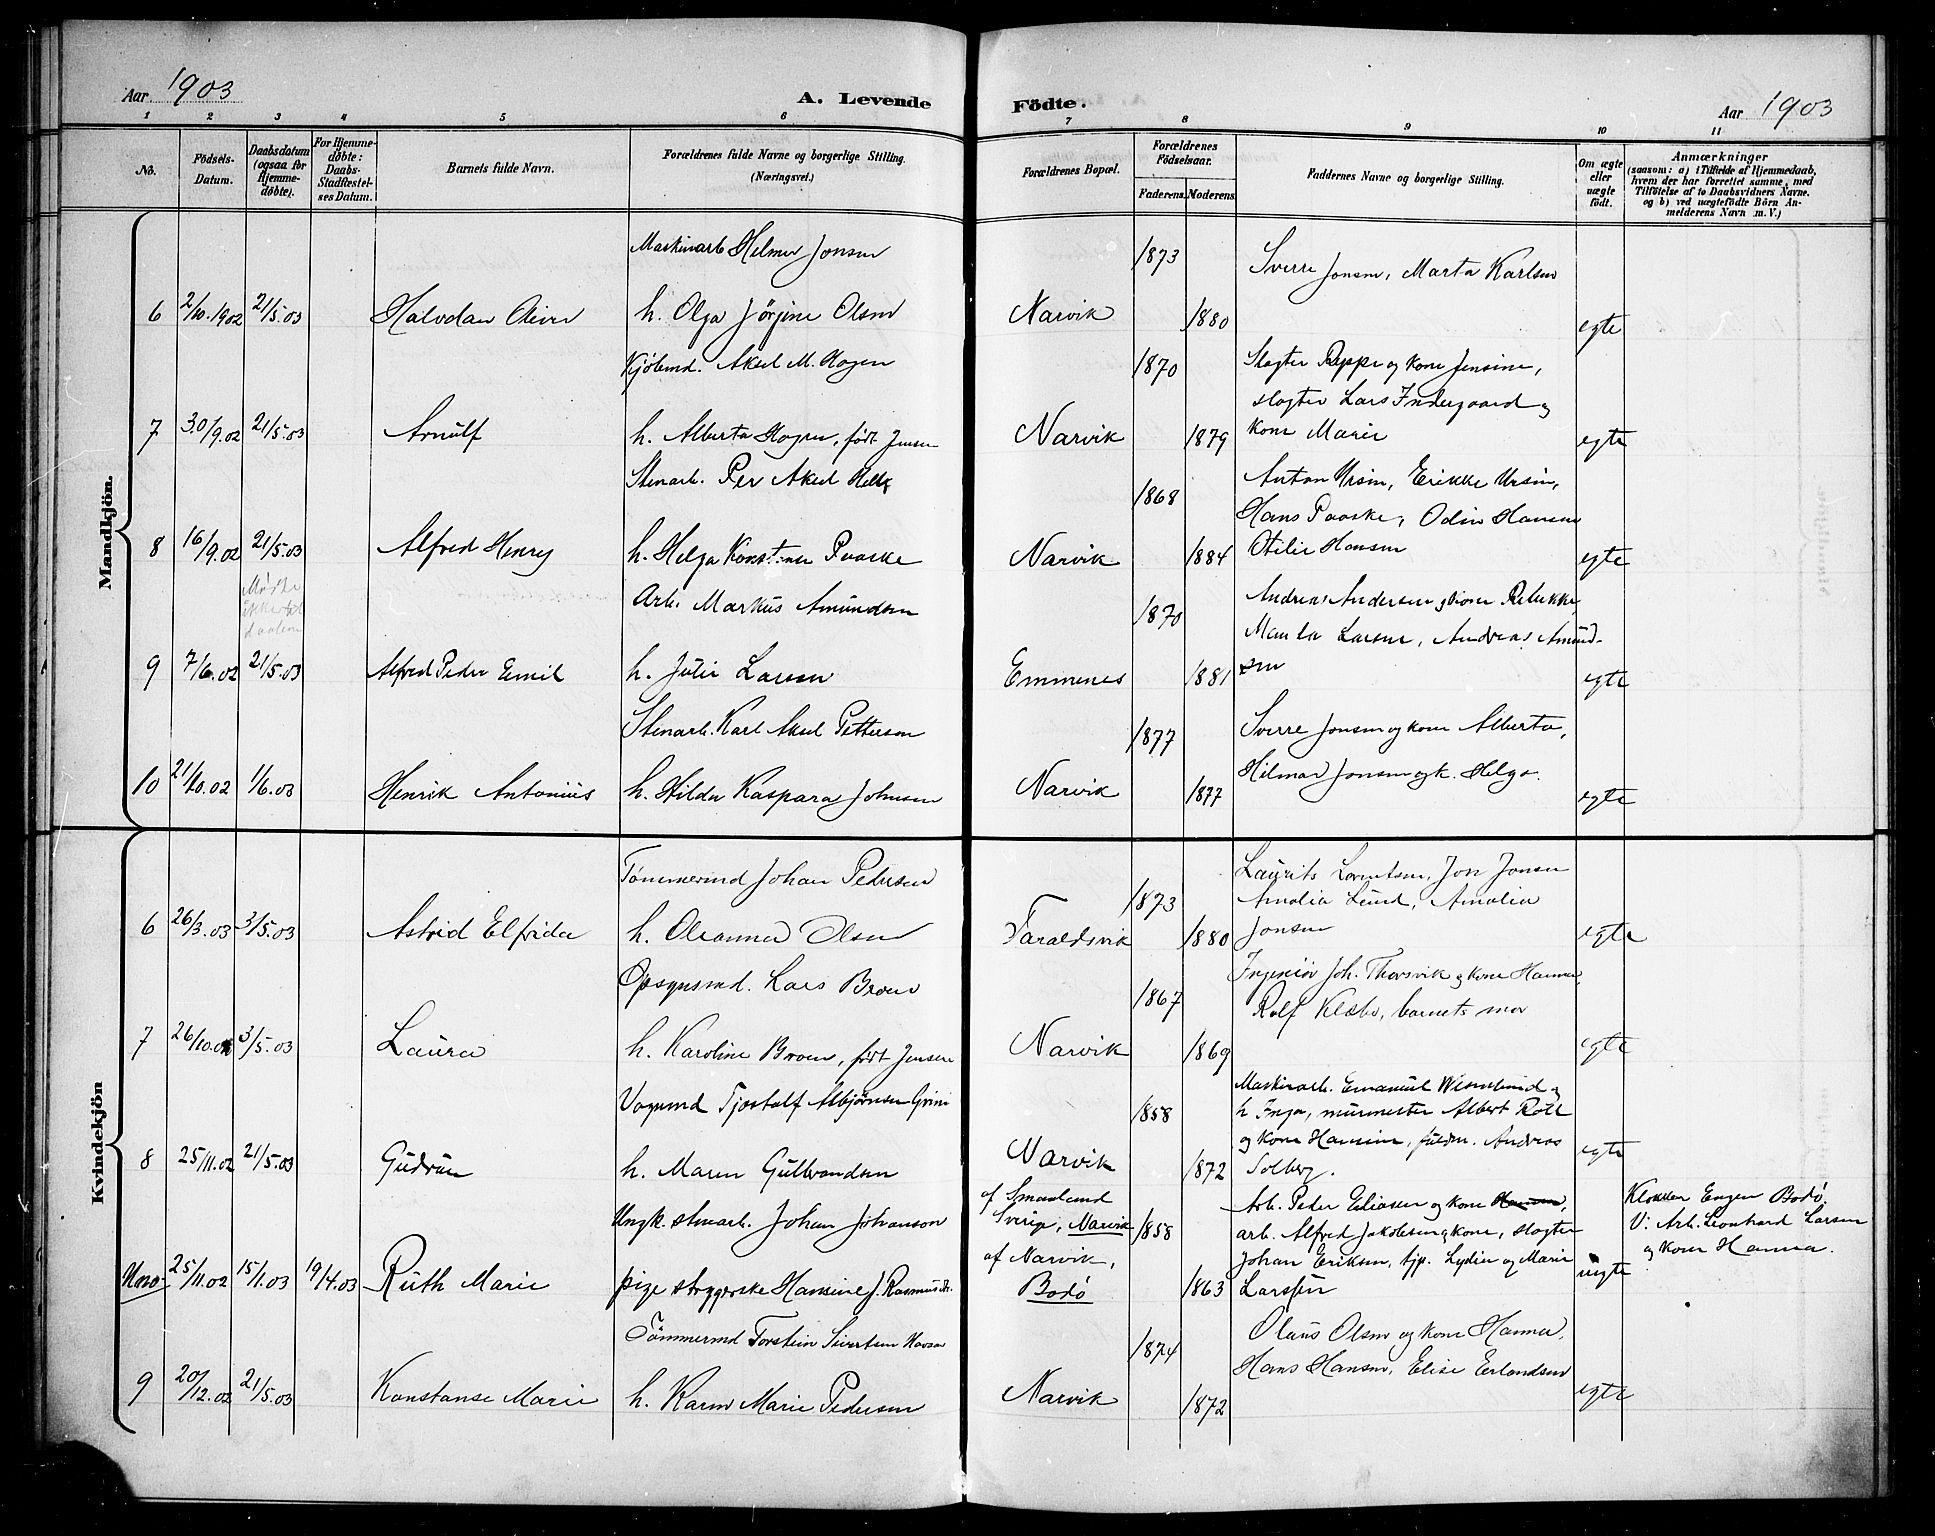 Aar 1903
A. Levende
Födte.
Aar 1903
1 2 3 4 5 6 7 8 9 10 11
No.
Födsels-Datum.
Daabsdatum (ogsaa for Hjemmedöbte).
For Hjemmedöbte: Daabs-Stadfæstelses Datum.
Barnets fulde Navn.
Forældrenes fulde Navne og borgerlige Stilling.
(Næringsvei.)
Forældrenes Bopæl.
Forældrenes Födselsaar.
Faderens. Moderens.
Faddernes Navne og borgerlige Stilling.
Om ægte eller uægte födt.
Anmærkninger
(saasom: a) i Tilfælde af Hjemmedaab,
hvem der har forrettet samme, med
Tilföielse af to Daabsvidners Navne.
og b) ved uægtefödte Börn An-
melderens Navn m. V.)
Mandkjön.
Maskinarb Helmer Jonsen
1873
Sverre Jonsen, Marta Karlsen
6 2/10.1902 21/5.03 Halvdan h. Olga Jörgine Olsen Narvik 1880 egte
Kjöbmd. Aksel M. Hagen
1870
Slagter Rypp og kone Jensine,
slagter Lars Indergaard og
7 30/9.02 21/5.03 Arnulf h. Alberta Hagen, født Jensen Narvik 1879 kone Marie egte
Stenarb. Per Aksel
1868
Anton Ursin, Erikke Ursin,
Hans Paaske, Odin Hansen
8 16/9.02 21/5.03 Alfred Henry h. Helga Paaske Narvik 1884 Otilie Hansen egte
Arb. Markus Amundsen
1870
Andreas Andersen og kone Rebekke,
Larsen, Andreas Amund-
9 7/6.02 21/5.03 Alfred Peder Emil h. Julie Larsen Emmenes 1881 sen egte
Stenarb. Karl Aksel Petterson
1877
Sverre Jonsen og kone Alberta,
Hilmar Jonsen og k. Helga.
10 21/10.02 1/6.03 Henrik Antonius h. Hilda Kaspara Johnsen Narvik 1877 egte
Kvindekjön
Tömmermd Johan Pedersen
1873
Laurits Lorentsen, Jon Jonsen
Amalia Lund, Amalia
6 26/3.03 3/5.03 Astrid Elfrida h. Oleanna Olsen Taraldsvik 1880 Jonsen egte
Opsynsmd. Lars Broen
1867
Ingeniör Joh. Thorsvik og kone Hanna,
Rolf Klæbo, barnets mor
7 26/10.02 3/5.03 Laura h. Karoline Broen, født Jensen Narvik 1869 egte
Vognmd Tjostolf Asbjørnsen Grini
1858
Maskinarb. Emanuel og
h Inga, murmester Albert Roll
og kone Hansine, fuldm. Andreas
8 25/11.02 21/5.03 Gudrun h. Maren Gulbrandsen Narvik 1872 Solberg. egte
Ungk. stenarb. Johan Johanson
af Smaaland
Sverige, Narvik 1858
af Narvik,
Arb. Peder Eliasen og kone Hansine,
arb. Alfred Jakobsen og kone, slagter
Johan Eriksen, tjp. Lydia og Marie
25/11.02 15/1.03 19/4.03 Ruth Marie pige strygerske Hansine J. Rasmusdtr. Bodö 1863 Larsen uegte
Klokker Engen Bodö.
V: Arb. Leonhard Larsen
og kone Hanna.
Tömmermd Torstein Sivertsen
1874
Olaus Olsen og kone Hanna,
Hans Hansen, Elise Erlandsen
9 20/12.02 21/5.03 Konstanse Marie h. Karen Marie Pedersen Narvik 1872 egte